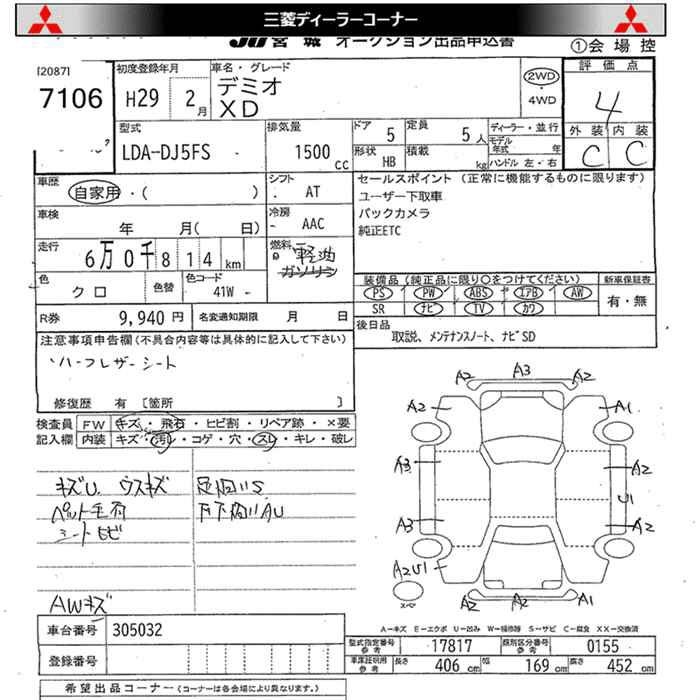 三菱ディーラーコーナー
JU宮城 オークション出品申込書
①会場控
[2087]
7106
初度登録年月
H29 2月
車名・グレード
デミオ
XD
2WD
・
4WD
評価点
4
外装 内装
C C
型式
LDA-DJ5FS
排気量
1500 cc
ドア 5
定員 5人
形状 HB
積載 kg
ディーラー・並行
モデル年式 年
ハンドル 左・右
車歴
自家用・( )
シフト
AT
車検
年 月( 日)
冷房
AAC
走行
6万0千814km
燃料
軽油
ガソリン
色
クロ
色替
色コード
41W -
R券 9,940 円
名変通知期限 月 日
セールスポイント (正常に機能するものに限ります)
ユーザー下取車
バックカメラ
純正ETC
装備品(純正品に限り○をつけてください)
PS PW ABS エアB AW
SR ナビ TV カワ
新車保証書
有・無
後日品
取説、メンテナンスノート、ナビSD
注意事項申告欄(不具合内容等は具体的に記入して下さい)
ハーフレザーシート
修復歴 有 [箇所 ]
検査員記入欄
FW キズ・飛石・ヒビ割・リペア跡・×要
内装 キズ・汚レ・コゲ・穴・スレ・キレ・破レ
キズU ウスキズ
ペット毛有
シートヒビ
AWキズ
A2 A3 A2
A2 A1
A3 A2
U1
A3 A2
A2U1
A2 A2 A1
スペア
A-キズ E-エクボ U-凹み W-補修跡 S-サビ C-腐食 XX-交換済
車台番号 305032
登録番号
型式指定番号 参考 17817
類別区分番号 参考 0155
車庫証明用 参考 長さ 406 cm 幅 169 cm 高さ 452 cm
希望出品コーナー(コーナーは各会場により異なります。)